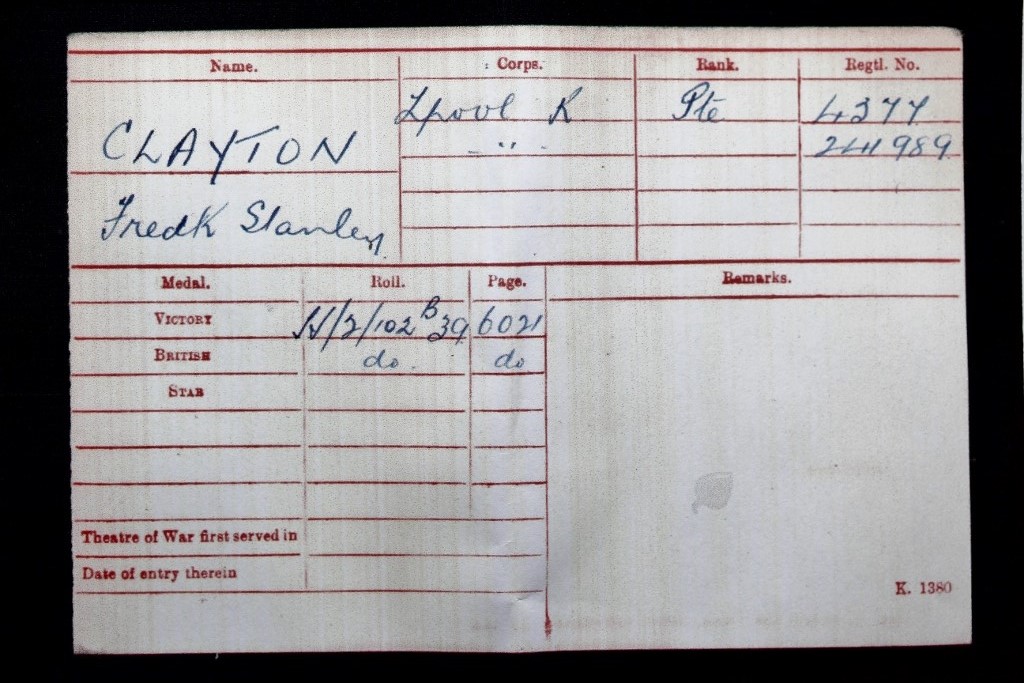 Name. Corps. Rank. Regtl. No.
CLAYTON
Fredk Stanley
Lpool K Pte 4377
- " - 241989
Medal. Roll. Page. Remarks.
VICTORY H/2/102 B39 6021
BRITISH do. do
STAR
Theatre of War first served in
Date of entry therein
K. 1380